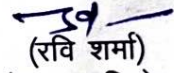 (रवि शर्मा)